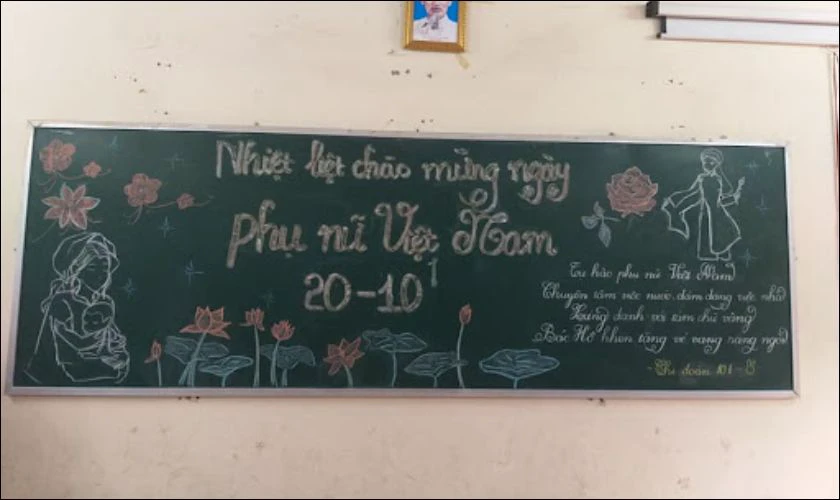 Nhiệt liệt chào mừng ngày
phụ nữ Việt Nam
20-10
Tự hào phụ nữ Việt Nam
Chuyên tâm việc nước, đảm đang việc nhà
Xứng danh với tám chữ vàng
Bác Hồ khen tặng vẻ vang rạng ngời
- Chi đoàn 10